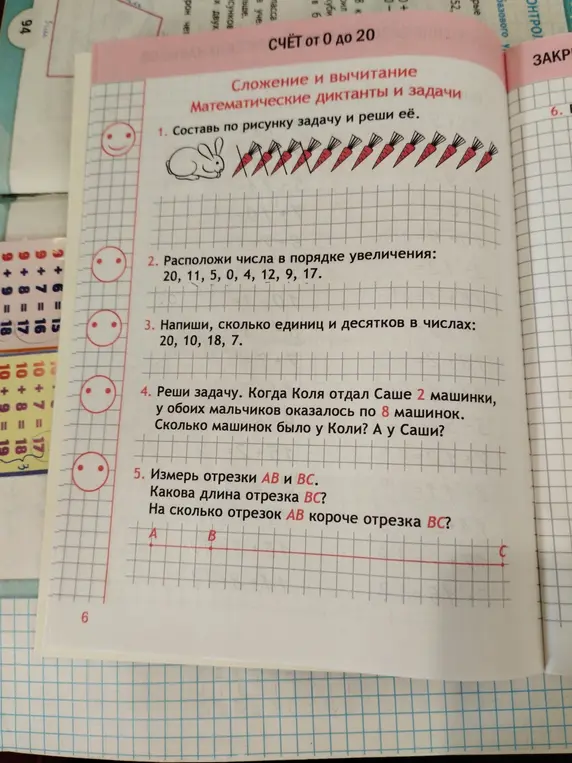 94
СЧЁТ от 0 до 20
Сложение и вычитание
Математические диктанты и задачи
1. Составь по рисунку задачу и реши её.
2. Расположи числа в порядке увеличения:
20, 11, 5, 0, 4, 12, 9, 17.
3. Напиши, сколько единиц и десятков в числах:
20, 10, 18, 7.
4. Реши задачу. Когда Коля отдал Саше 2 машинки,
у обоих мальчиков оказалось по 8 машинок.
Сколько машинок было у Коли? А у Саши?
5. Измерь отрезки АВ и ВС.
Какова длина отрезка ВС?
На сколько отрезок АВ короче отрезка ВС?
А В С
6
ЗАКР
6.
9 + 6 = 15
9 + 7 = 16
9 + 8 = 17
9 + 9 = 18
10 + 7 = 17
10 + 8 = 18
10 + 9 = 19